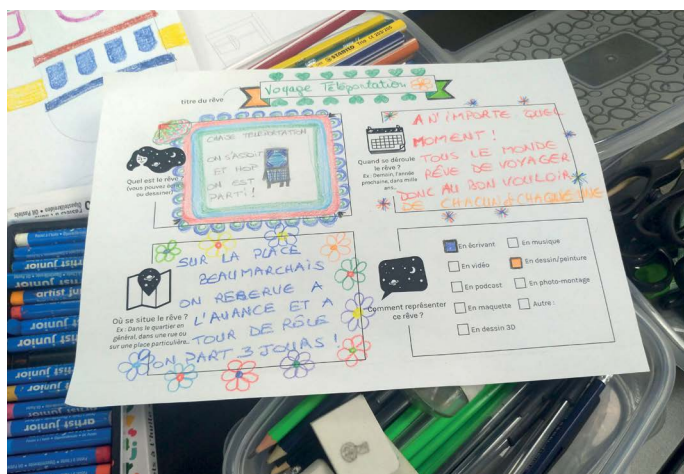 titre du rêve
Voyage Téléportation
Quel est le rêve ?
(vous pouvez
ou dessiner)
CHAISE TELEPORTATION
ON S'ASSOIT
ET HOP
ON EST
PARTI !
Quand se déroule
le rêve ?
Ex : Demain, l'année
prochaine, dans mille
ans...
A N'IMPORTE QUEL
MOMENT !
TOUS LE MONDE
RÊVE DE VOYAGER
DONC AU BON VOULOIR
DE CHACUN & CHACUNE
Où se situe le rêve ?
Ex : Dans le quartier en
général, dans une rue ou
sur une place particulière...
SUR LA PLACE
BEAUMARCHAIS
ON RESERVE A
L'AVANCE ET A
TOUR DE RÔLE
ON PART 3 JOURS !
Comment représenter
ce rêve ?
En écrivant
En musique
En vidéo
En dessin/peinture
En podcast
En photo-montage
En maquette
Autre :
En dessin 3D
STABILO
junior artist
junior artist
junior
artist junior
artist junior